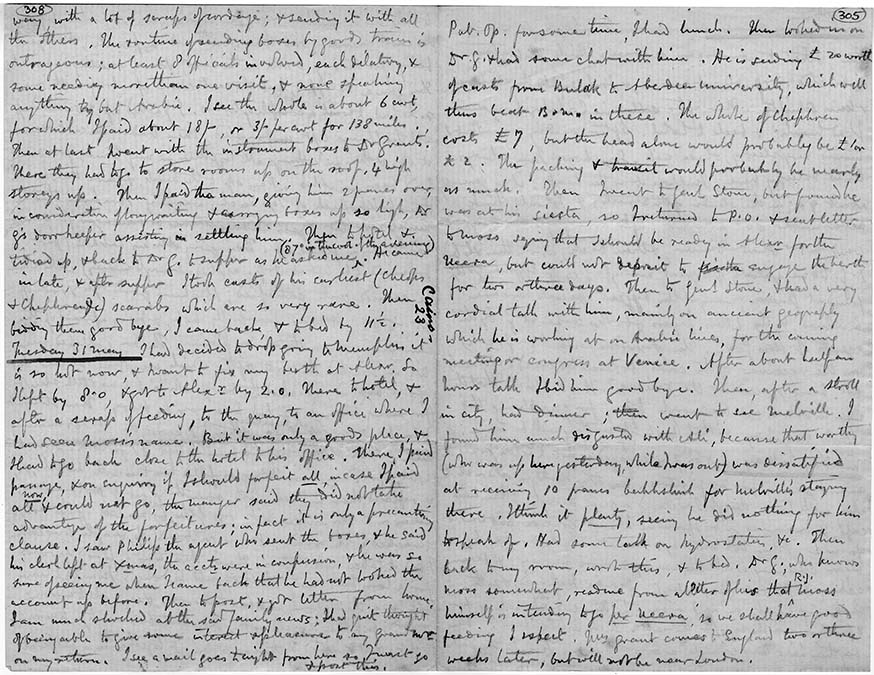 308
way with a lot of scraps of cordage; & sending it with all
the others. The routine of sending boxes by goods train is
outrageous; at least 8 officials involved, each dilatory, &
some needing more than one visit, & none speaking
anything but Arabic. I see the whole is about 6 cwt,
for which I paid about 18/-, or 3/- per cwt for 138 miles.
Then at last I went with the instrument boxes to Dr Grant's.
There they had to go to store rooms up on the roof, 4 high
storeys up. Then I paid the man, giving him 2 francs over
in consideration of long waiting & carrying boxes up so high, Dr
G's doorkeeper assisting in settling him. Then to hotel &
tidied up, & back to Dr G. to supper as he asked me
(@ 7.0 in the evening). He came
in late, & after supper I took casts of his earliest (Cheops
& Chephren &c) scarabs which are so very rare. Then
bidding them good bye, I came back & to bed by 11½.
Cairo
23
Tuesday 31 May I had decided to drop going to Memphis it
is so hot now, & want to fix my berth at Alexr. So
I left by 8.0, & got to Alexr by 2.0. There to hotel, &
after a scrap of feeding, to the quay, to an office where I
had seen Moss's name. But it was only a goods place, &
I had to go back close to the hotel to his office. There, I paid
passage, & on enquiring if I should forfeit all in case I paid
all now & could not go, the manager said they did not take
advantage of the forfeitures; in fact it is only a precautionary
clause. I saw Philip the agent who sent the boxes, & he said
his clerk left at Xmas, the accts were in confusion, & he was so
sure of seeing me when I came back that he had not looked the
account up before. Then to post, & got letter from home,
I am much shocked at the sad family news; I had quite thought
of being able to give some interest & pleasure to my grand
on my return. I see a mail goes tonight from here so I must go
& post this.
305
Pub. Op. for some time, & had lunch. Then looked in on
Dr G. & had some chat with him. He is sending £20 worth
of casts from Bulak to Aberdeen university, which will
thus beat B.M. in these. The whole of Chephren
costs £7, but the head alone would probably be £1 or
£2. The packing & transit would probably be nearly
as much. Then I went to Genl Stone, but found he
was at his siesta, so I returned to P.O. & sent letter
to Moss saying that I should be ready in Alexr for the
Neera, but could not deposit to engage the berth
for two or three days. Then to Genl Stone, & had a very
cordial talk with him, mainly on ancient geography
which he is working at on Arabic lines, for the coming
meeting or congress at Venice. After about half an
hours talk I bid him good bye. Then, after a stroll
in city, had dinner; then went to see Melville. I
found him much disgusted with Ali, because that worthy
(who was up here yesterday, while I was out) was dissatisfied
at receiving 10 francs bakhshish for Melville's staying
there. I think it plenty, seeing he did nothing for him
to speak of. Had some talk on hydrostatics &c. Then
back to my room, wrote this, & to bed. Dr G. who knows
Moss somewhat, read me from a letter of his that R.J. Moss
himself is intending to go per Neera so we shall have good
feeding I expect. Mrs Grant comes to England two or three
weeks later, but will not be near London.